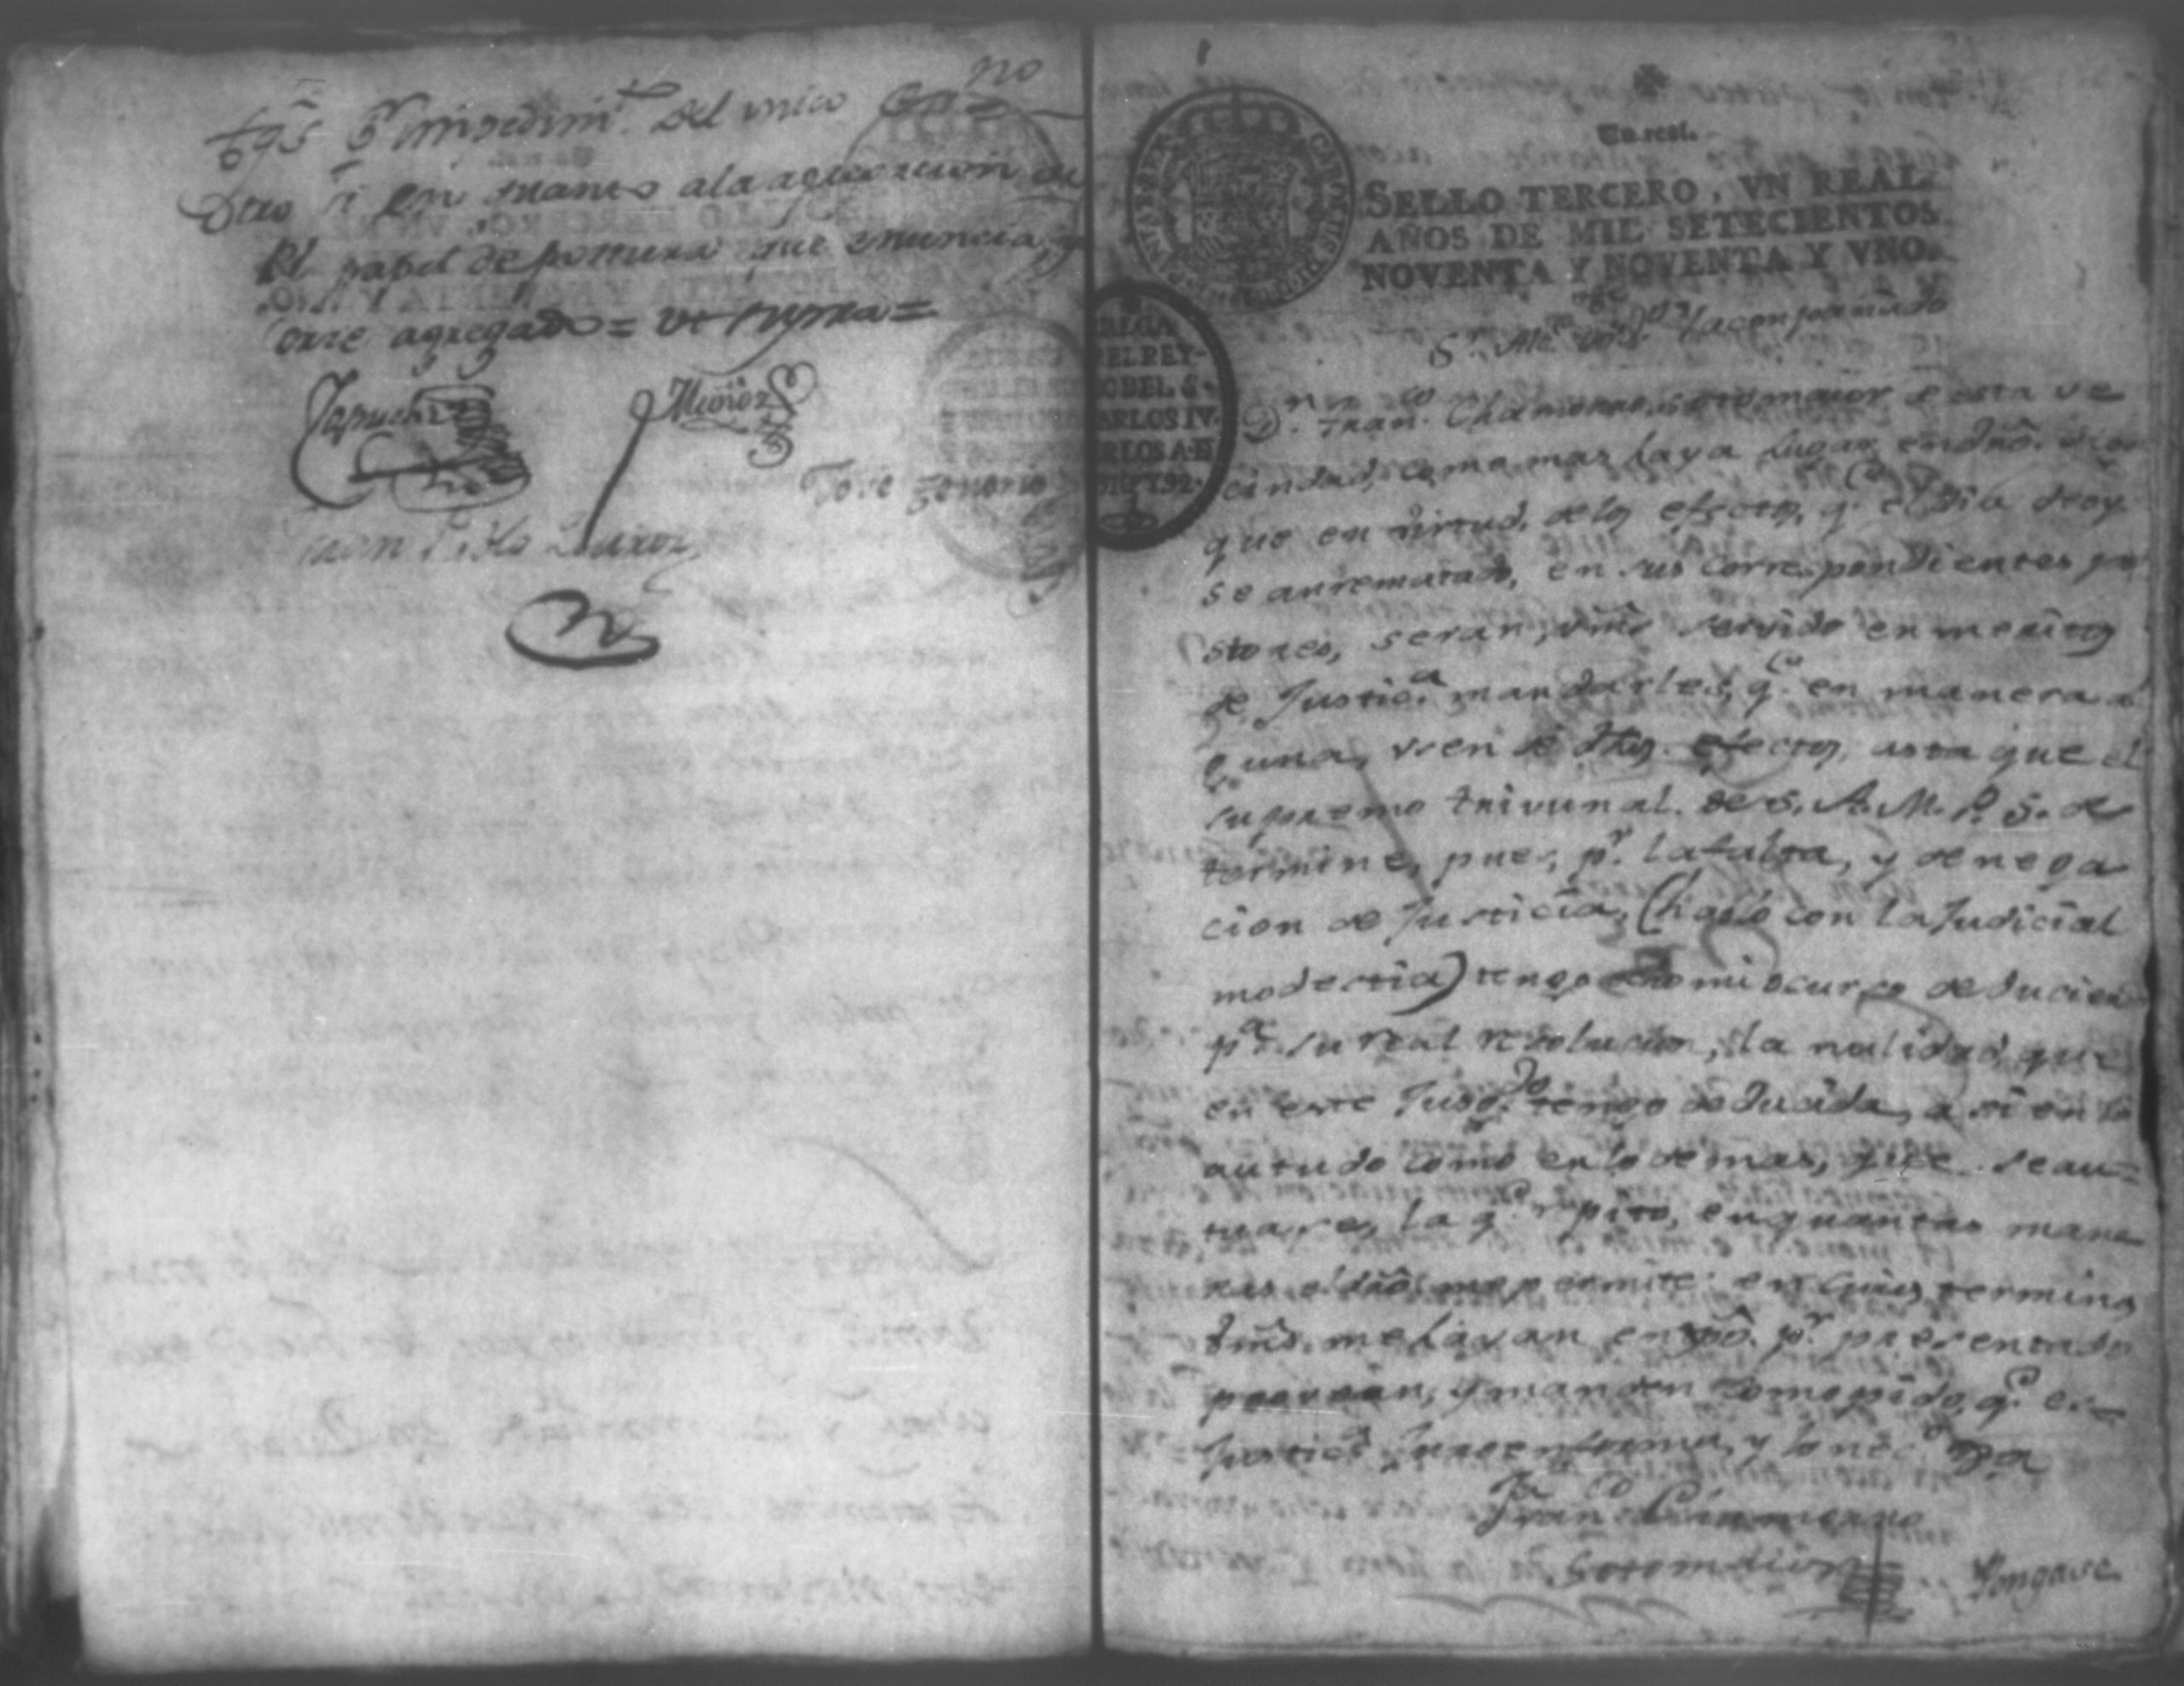 tgs. pr. impedimto. del unico Essno
Otro si en quanto a la agregacion de
el papel de postura que enuncia, y
corre agregado = ut supra =
Muñoz
Jose Tenorio
Juan Pablo
Un real.
SELLO TERCERO, VN REAL,
AÑOS DE MIL SETECIENTOS
NOVENTA Y NOVENTA Y VNO.
VALGA
DEL REY
CARLOS IV
Sr. acompañado
Dn. Franco. Chamorro sotomaior de esta ve
cindad, como mas haya lugar en dro. digo
que en virtud, de los efectos, qe. el dia de oy
se an rematado, en sus correspondientes po
stores, seran, vms. servido en meritos
de Justica. mandarles, qe. en manera al
guna, usen de dhos. efectos, asta que el
supremo trivunal de S. A. M. P. S. de
termine, pues, pr. la falta, y denega
cion de Justicia, (hablo con la Judicial
modestia) tengo mi ocurso deducido
pa. su real resolucion, la nulidad que
en este Jusgdo. tengo deducida, asi en lo
autuado como en lo demas, que se au=
tuare, la qe. repito, en quantas mane
ras el dro. me permite: en cuios terminos
vms. me hayan en pr. presentado
provean, y manden como pido, qe. es
Justica. Juro en forma, y lo neco. &a
Franco. Chamorro
Sotomaior
Pongase